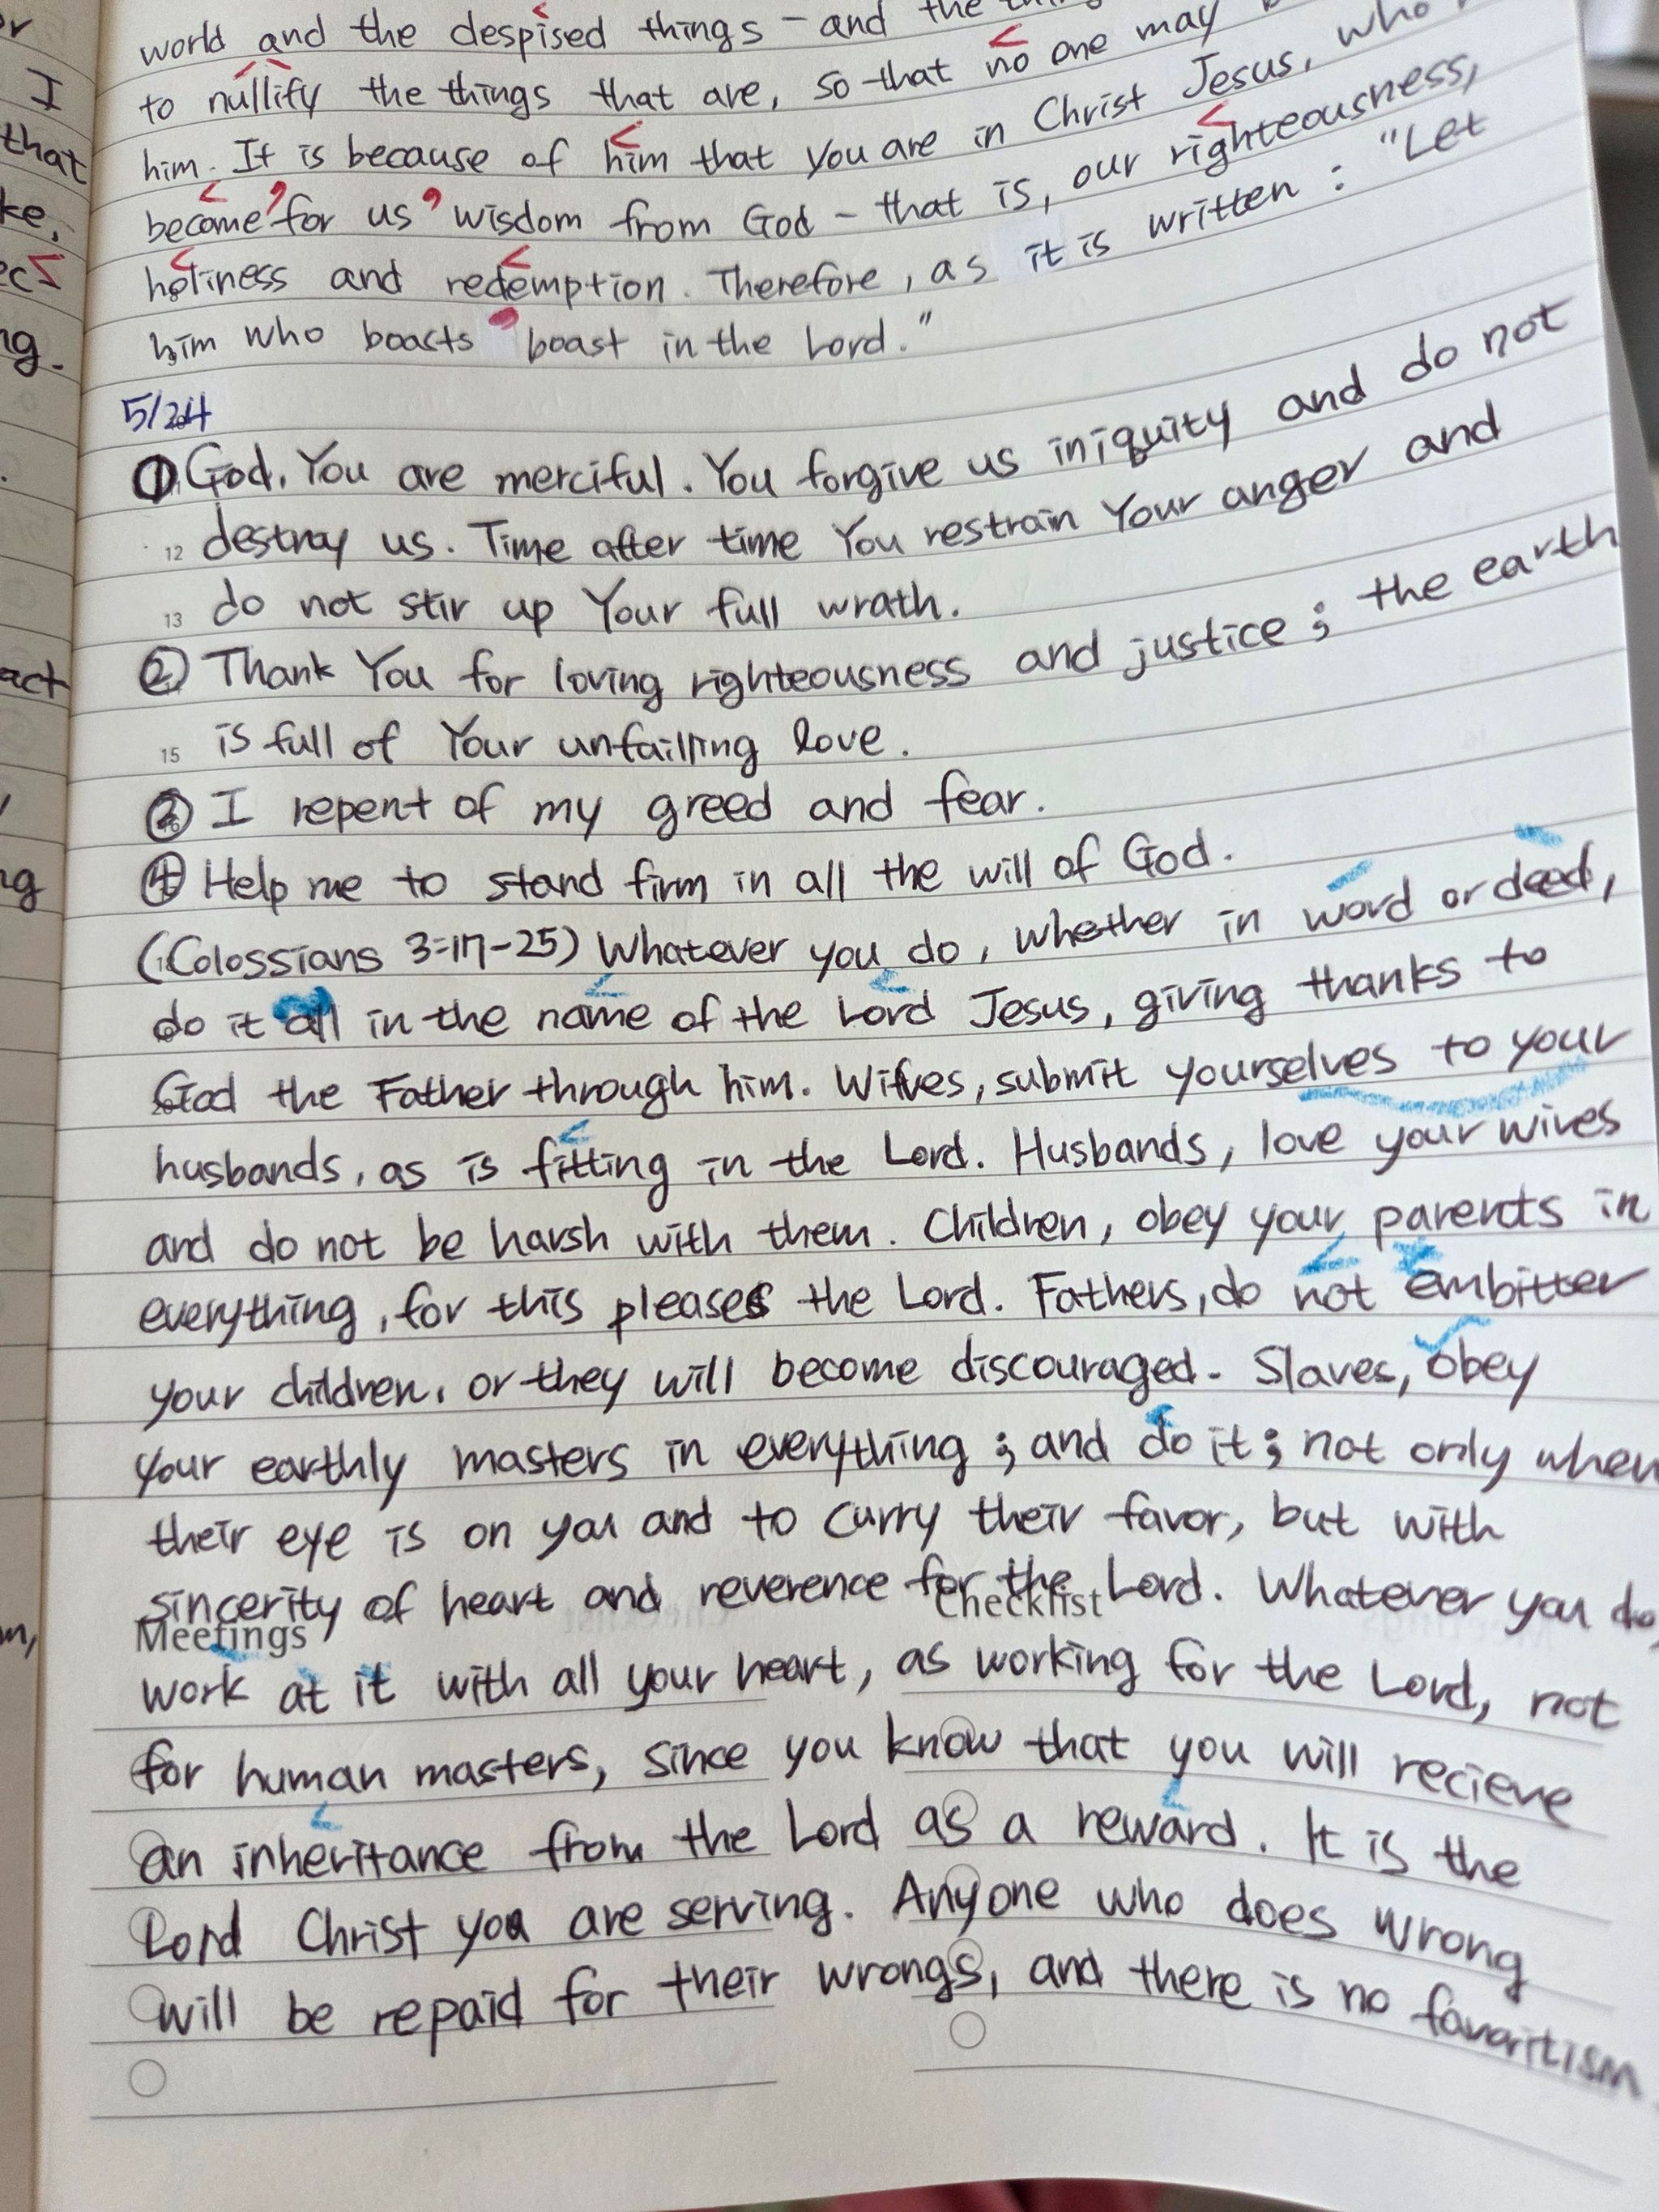 world and the despised things - and the
to nullify the things that are, so that no one may
him. It is because of him that you are in Christ Jesus, who
become for us wisdom from God - that is, our righteousness,
holiness and redemption. Therefore, as it is written : "Let
him who boasts boast in the Lord."
5/24
① God, You are merciful. You forgive us iniquity and do not
12 destroy us. Time after time You restrain Your anger and
13 do not stir up Your full wrath.
② Thank You for loving righteousness and justice ; the earth
15 is full of Your unfailing love.
③ I repent of my greed and fear.
④ Help me to stand firm in all the will of God.
(Colossians 3:17-25) Whatever you do, whether in word or deed,
do it all in the name of the Lord Jesus, giving thanks to
God the Father through him. Wives, submit yourselves to your
husbands, as is fitting in the Lord. Husbands, love your wives
and do not be harsh with them. Children, obey your parents in
everything, for this pleases the Lord. Fathers, do not embitter
your children, or they will become discouraged. Slaves, obey
your earthly masters in everything ; and do it ; not only when
their eye is on you and to curry their favor, but with
sincerity of heart and reverence for the Lord. Whatever you do,
Meetings Checklist
work at it with all your heart, as working for the Lord, not
for human masters, since you know that you will recieve
an inheritance from the Lord as a reward. It is the
Lord Christ you are serving. Anyone who does wrong
will be repaid for their wrongs, and there is no favoritism.
I
that
ke,
ng.
act
ng